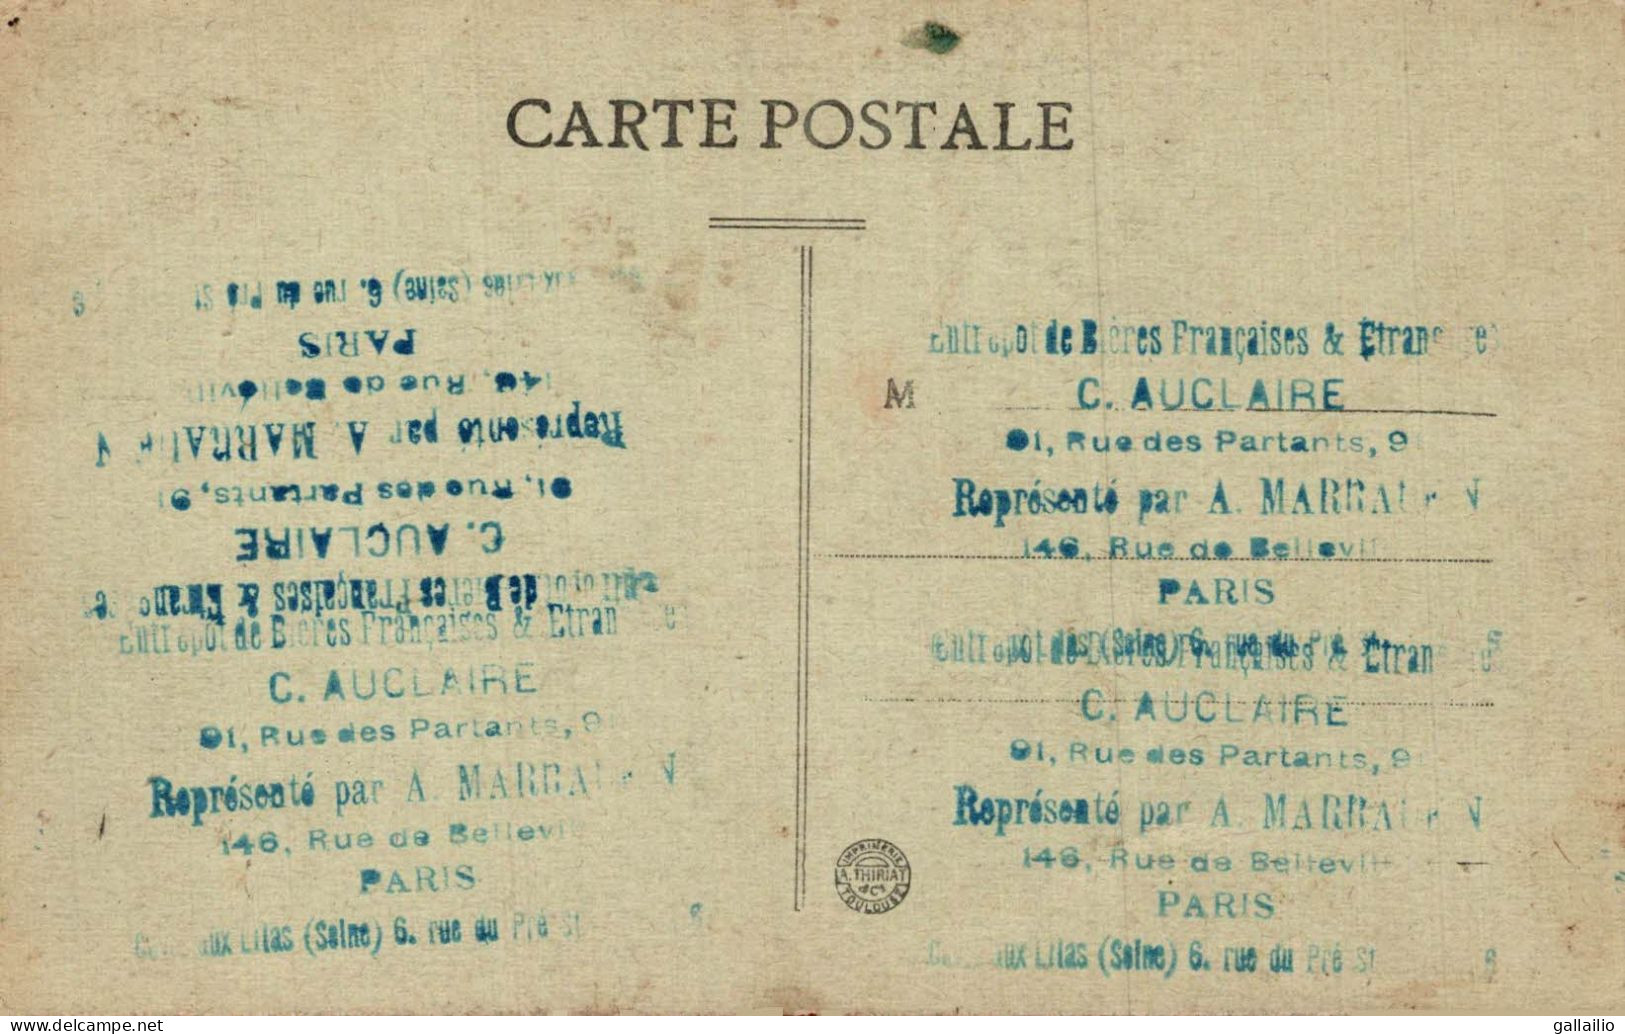 CARTE POSTALE
(Seine) 6. rue du Pré St
PARIS
146, Rue de
Représenté par A.
91, Rue des Partants, 91
C. AUCLAIRE
de Bières Françaises &
Entrepôt de Bières Françaises &
C. AUCLAIRE
91, Rue des Partants, 9
Représenté par A.
146, Rue de
PARIS
aux Lilas (Seine) 6. rue du Pré St 6
Entrepôt de Bières Françaises &
M
C. AUCLAIRE
91, Rue des Partants, 9
Représenté par A.
146, Rue de
PARIS
(Seine) 6. rue du Pré
Entrepôt de Bières Françaises &
C. AUCLAIRE
91, Rue des Partants, 9
Représenté par A.
146, Rue de
PARIS
aux Lilas (Seine) 6. rue du Pré St 6
IMPRIMERIE
A. THIRIAT
& Cie
TOULOUSE
Delcampe.net
gallailio